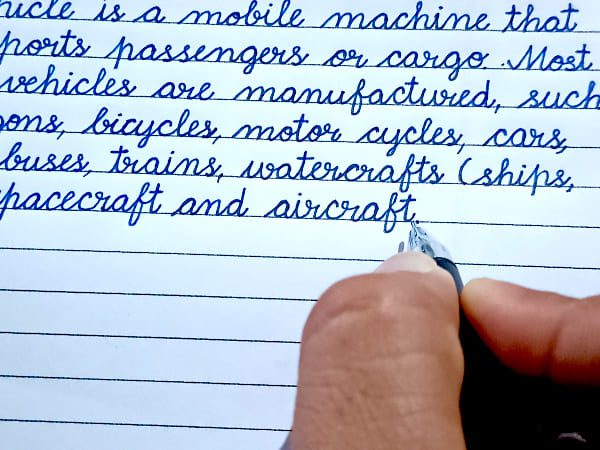 hicle is a mobile machine that
ports passengers or cargo. Most
vehicles are manufactured, such
ons, bicycles, motor cycles, cars,
buses, trains, watercrafts (ships,
pacecraft and aircraft.